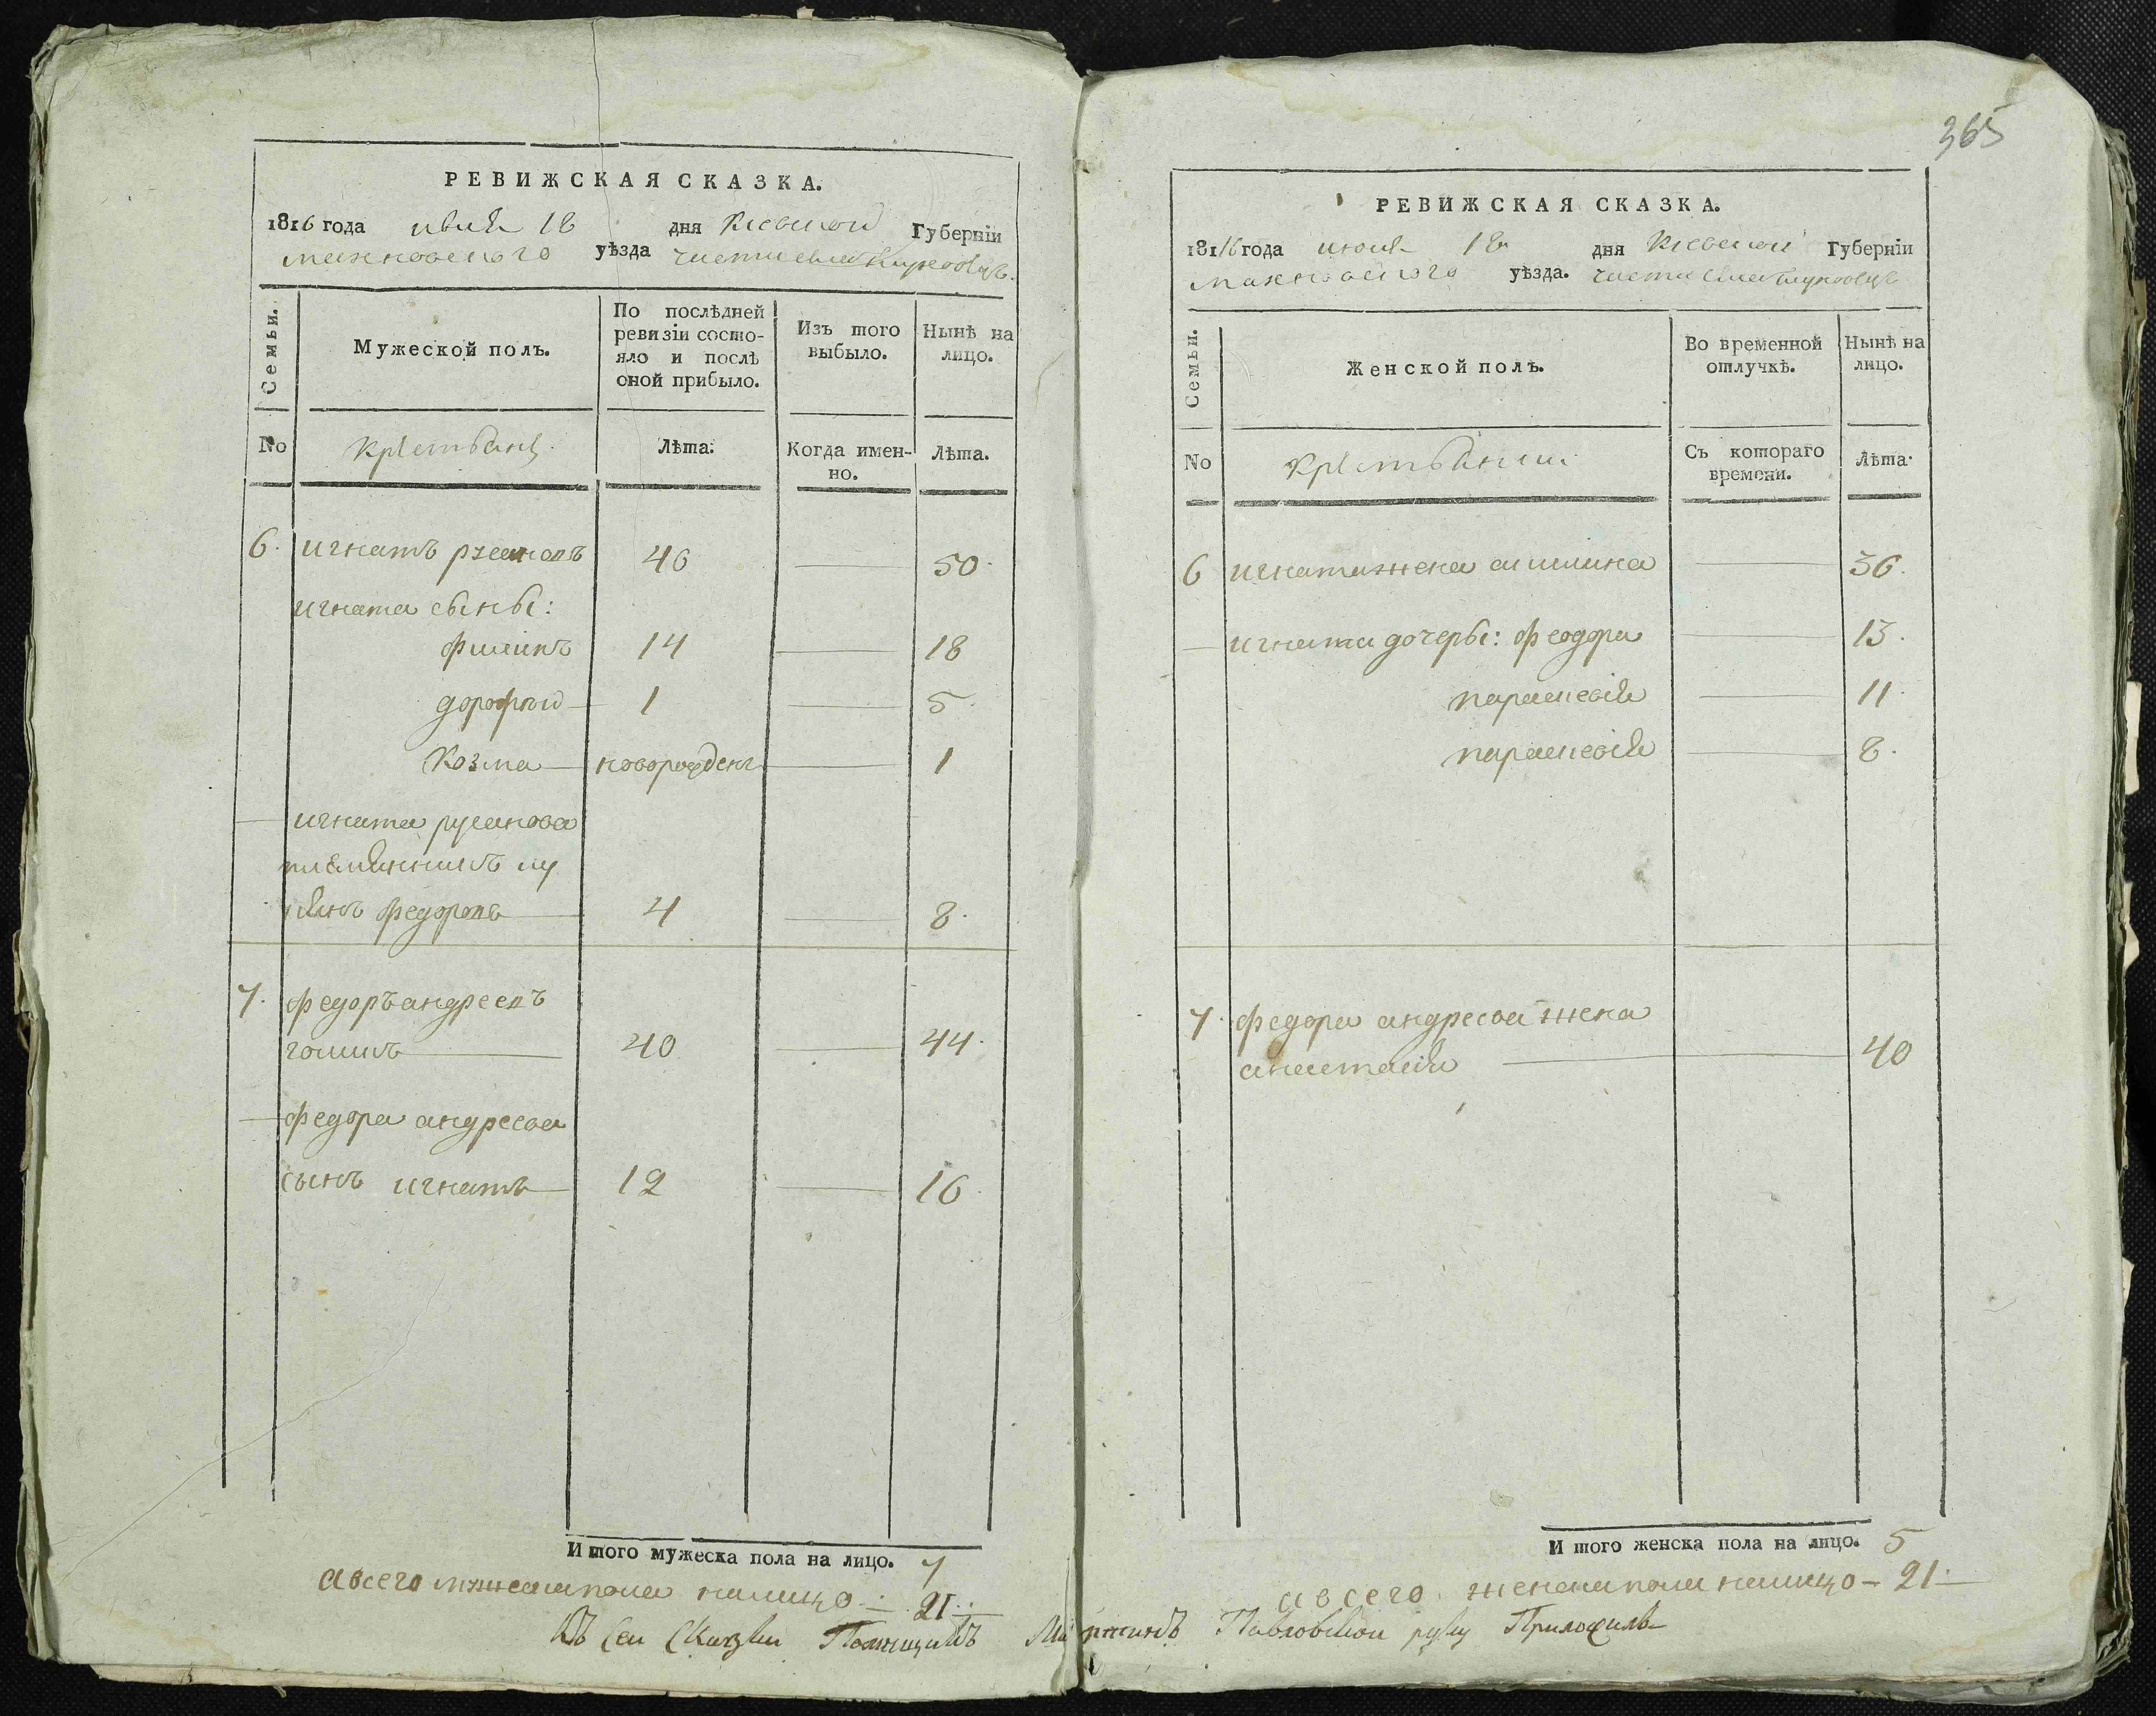 365
РЕВИЖСКАЯ СКАЗКА.
1816 года июня 18 дня Киевской Губерніи
махновского уѣзда части села Глуховецъ.
Семьи.
Мужеской полъ.
По послѣдней ревизіи состояло и послѣ оной прибыло.
Изъ того выбыло.
Нынѣ на лицо.
No
Крестьяне
Лѣта.
Когда имен-но.
Лѣта.
6. игнатъ русановъ 46 50.
игната сыны:
филипъ 14 18
дорофѣй 1 5
Козма новорожденъ 1
игната русанова
племянникъ лу
кянъ федоровъ 4 8.
7. федоръ андреевъ
40 44.
федора андреева
сынъ игнатъ 12 16.
И того мужеска пола на лицо. 7
а всего мужеска пола налицо 21
Къ сей Сказки Помещикъ Мартинъ Павловской руку Приложилъ
РЕВИЖСКАЯ СКАЗКА.
1816 года июня 18 дня Киевской Губерніи
махновского уѣзда. части села Глуховецъ
Семьи.
Женской полъ.
Во временной отлучкѣ.
Нынѣ на лицо.
No
Крестьянки
Съ котораго времени.
Лѣта.
6 игната жена акилина 36.
игната дочеры: феодора 13.
параскевія 11.
параскевія 8.
7. федора андреева жена
анастасія 40
И того женска пола на лицо. 5
а всего женска пола налицо – 21